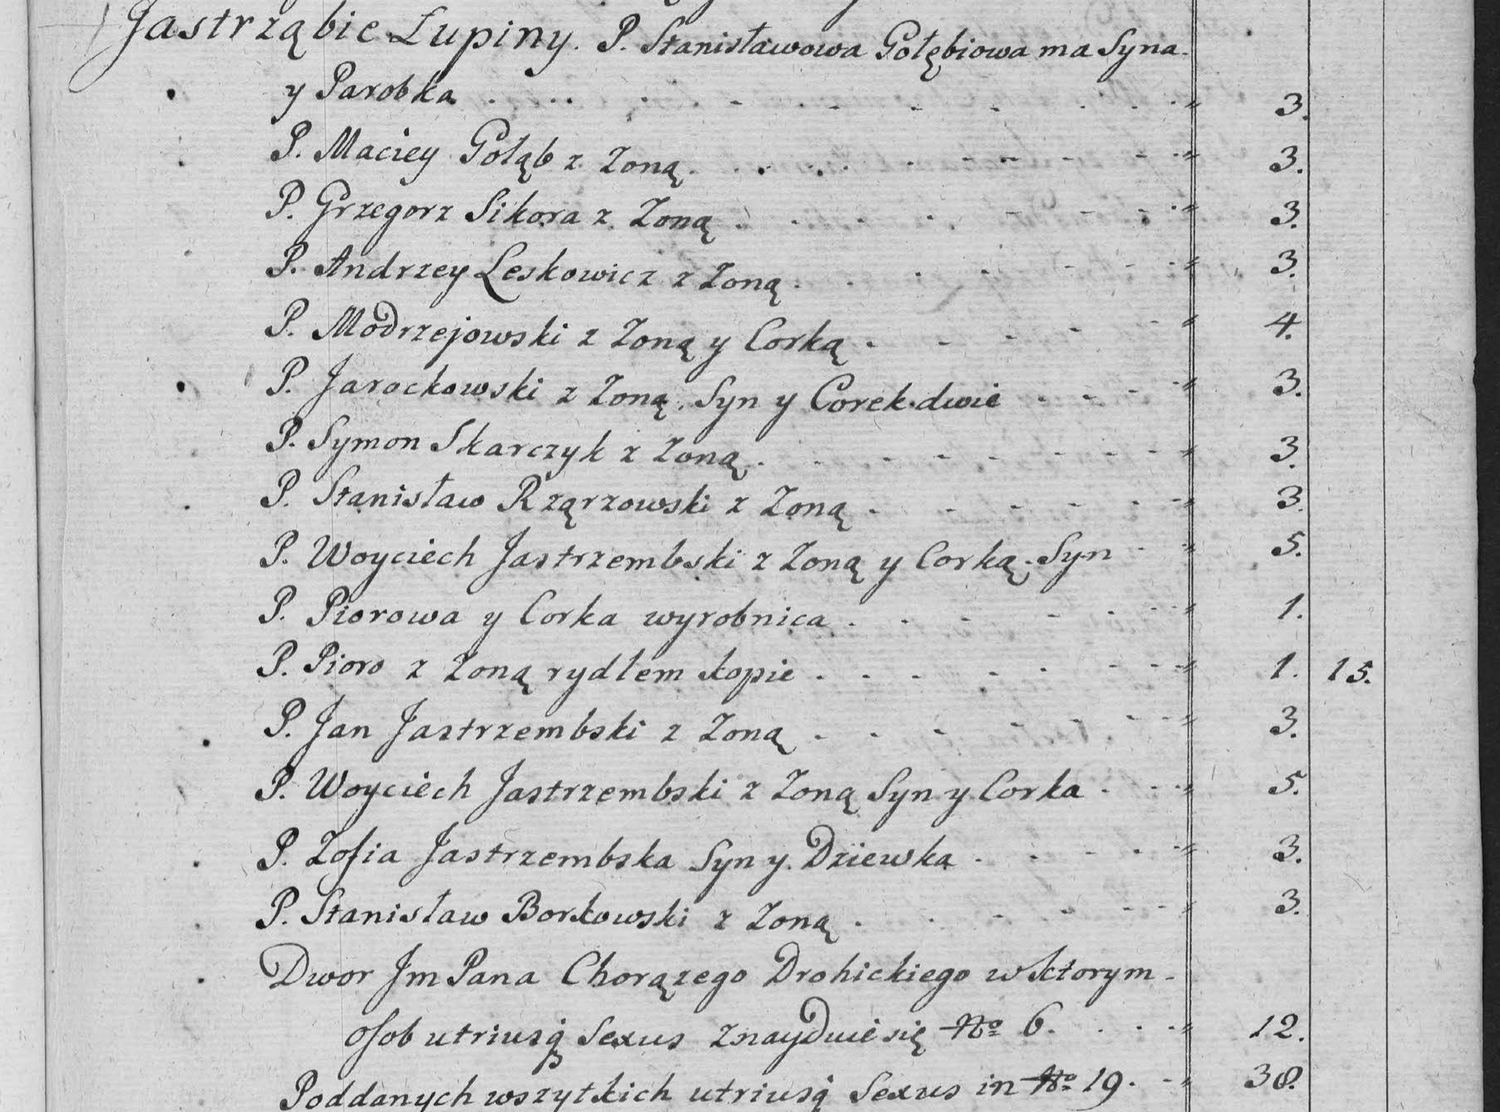 Jastrząbie Łupiny. P. Stanisławowa Gołębiowa ma Syna
y Parobka 3.
P. Maciey Gołąb z Zoną 3.
P. Grzegorz Sikora z Zoną 3.
P. Andrzey Leskowicz z Zoną 3.
P. Modrzejowski z Zoną y Corką 4.
P. Jarockowski z Zoną. Syn y Corek dwie 3.
P. Symon Skarczyk z Zoną 3.
P. Stanisław Rzązowski z Zoną 3
P. Woyciech Jastrzembski z Zoną y Corką. Syn 5.
P. Piorowa y Corka wyrobnica 1.
P. Pioro z Zoną rydlem kopie 1. 15.
P. Jan Jastrzembski z Zoną 3.
P. Woyciech Jastrzembski z Zoną Syn y Corka 5.
P. Zofia Jastrzembska Syn y Dziewka 3.
P. Stanisław Borkowski z Zoną 3.
Dwor Jm Pana Chorązego Drohickiego w ktorym
osob utriusq Sexus znayduie się No 6. 12.
Poddanych wszytkich utriusq Sexus in No 19. 38.